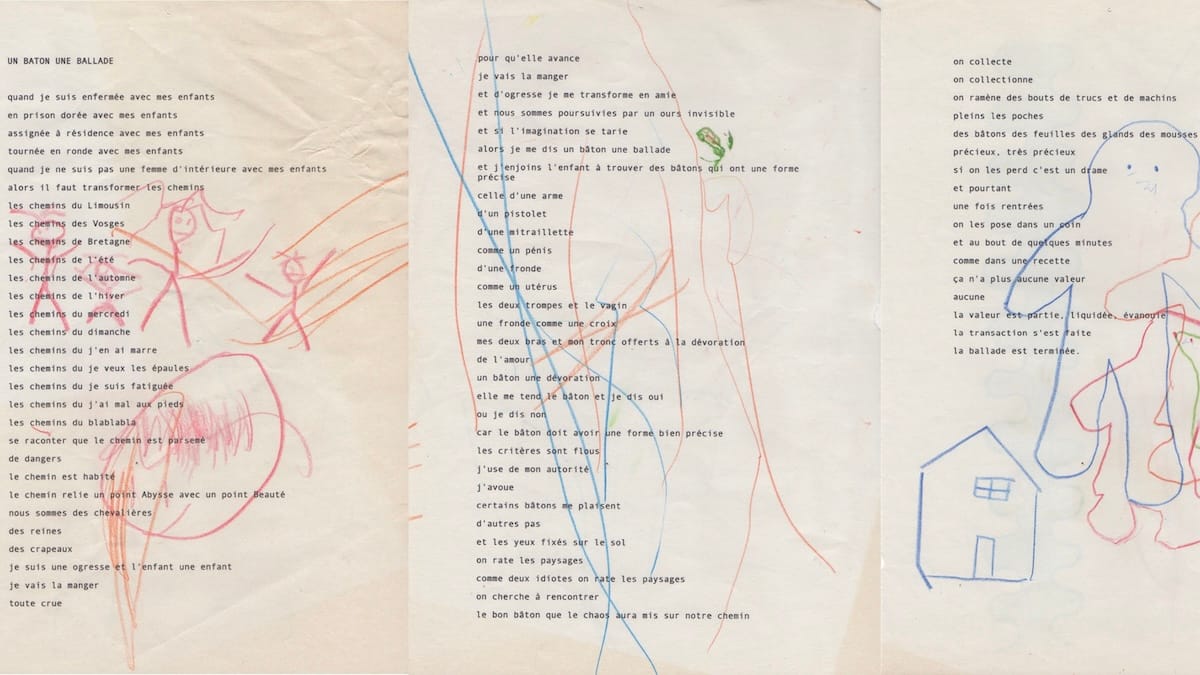 UN BATON UNE BALLADE
quand je suis enfermée avec mes enfants
en prison dorée avec mes enfants
assignée à résidence avec mes enfants
tournée en ronde avec mes enfants
quand je ne suis pas une femme d'intérieure avec mes enfants
alors il faut transformer les chemins
les chemins du Limousin
les chemins des Vosges
les chemins de Bretagne
les chemins de l'été
les chemins de l'automne
les chemins de l'hiver
les chemins du mercredi
les chemins du dimanche
les chemins du j'en ai marre
les chemins du je veux les épaules
les chemins du je suis fatiguée
les chemins du j'ai mal aux pieds
les chemins du blablabla
se raconter que le chemin est parsemé
de dangers
le chemin est habité
le chemin relie un point Abysse avec un point Beauté
nous sommes des chevalières
des reines
des crapeaux
je suis une ogresse et l'enfant une enfant
je vais la manger
toute crue
pour qu'elle avance
je vais la manger
et d'ogresse je me transforme en amie
et nous sommes poursuivies par un ours invisible
et si l'imagination se tarie
alors je me dis un bâton une ballade
et j'enjoins l'enfant à trouver des bâtons qui ont une forme
précise
celle d'une arme
d'un pistolet
d'une mitraillette
comme un pénis
d'une fronde
comme un utérus
les deux trompes et le vagin
une fronde comme une croix
mes deux bras et mon tronc offerts à la dévoration
de l'amour
un bâton une dévoration
elle me tend le bâton et je dis oui
ou je dis non
car le bâton doit avoir une forme bien précise
les critères sont flous
j'use de mon autorité
j'avoue
certains bâtons me plaisent
d'autres pas
et les yeux fixés sur le sol
on rate les paysages
comme deux idiotes on rate les paysages
on cherche à rencontrer
le bon bâton que le chaos aura mis sur notre chemin
on collecte
on collectionne
on ramène des bouts de trucs et de machins
pleins les poches
des bâtons des feuilles des glands des mousses
précieux, très précieux
si on les perd c'est un drame
et pourtant
une fois rentrées
on les pose dans un coin
et au bout de quelques minutes
comme dans une recette
ça n'a plus aucune valeur
aucune
la valeur est partie, liquidée, évanouie
la transaction s'est faite
la ballade est terminée.